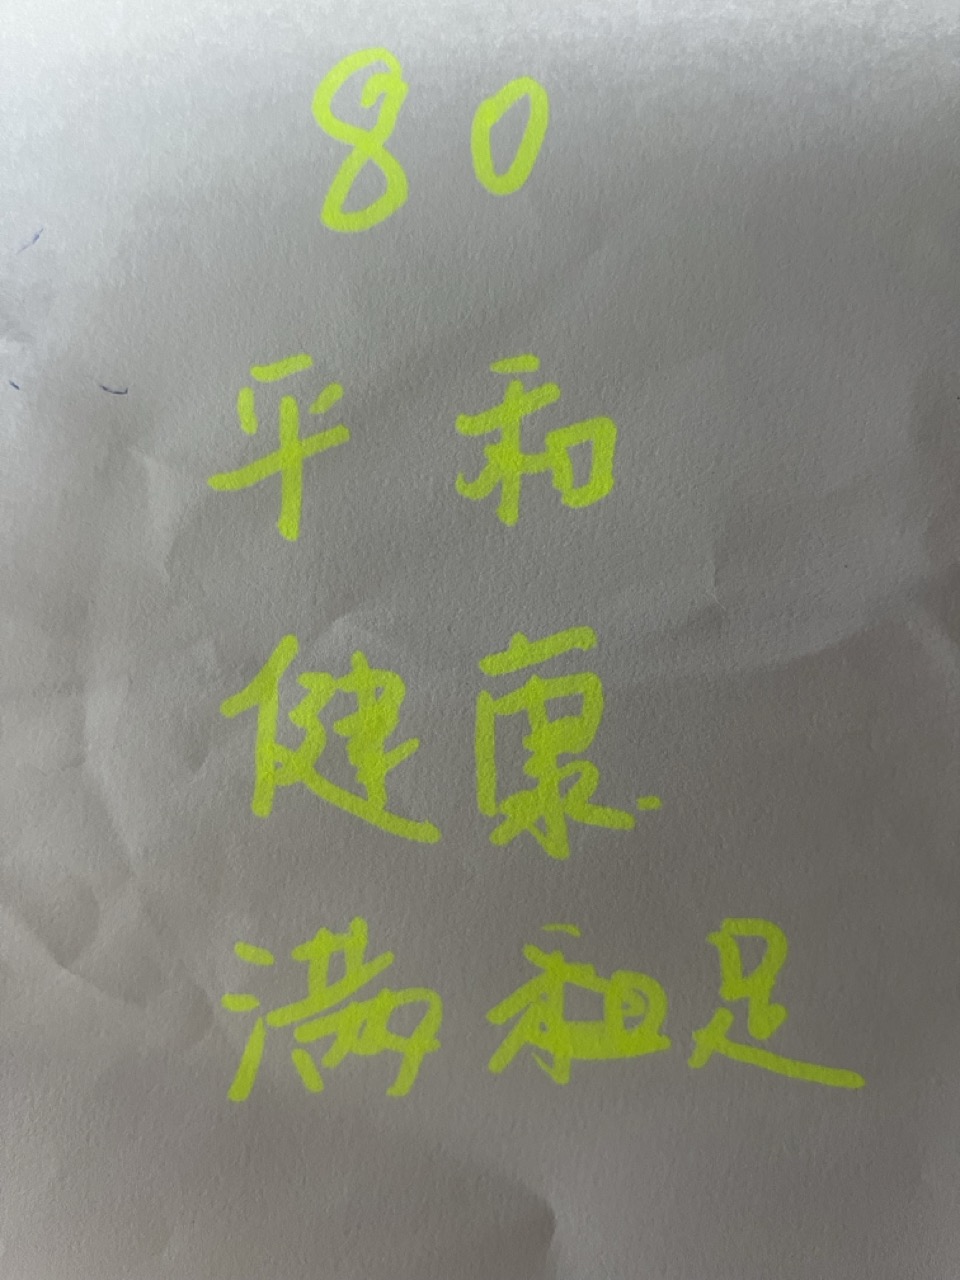 80
平和
健康
満足